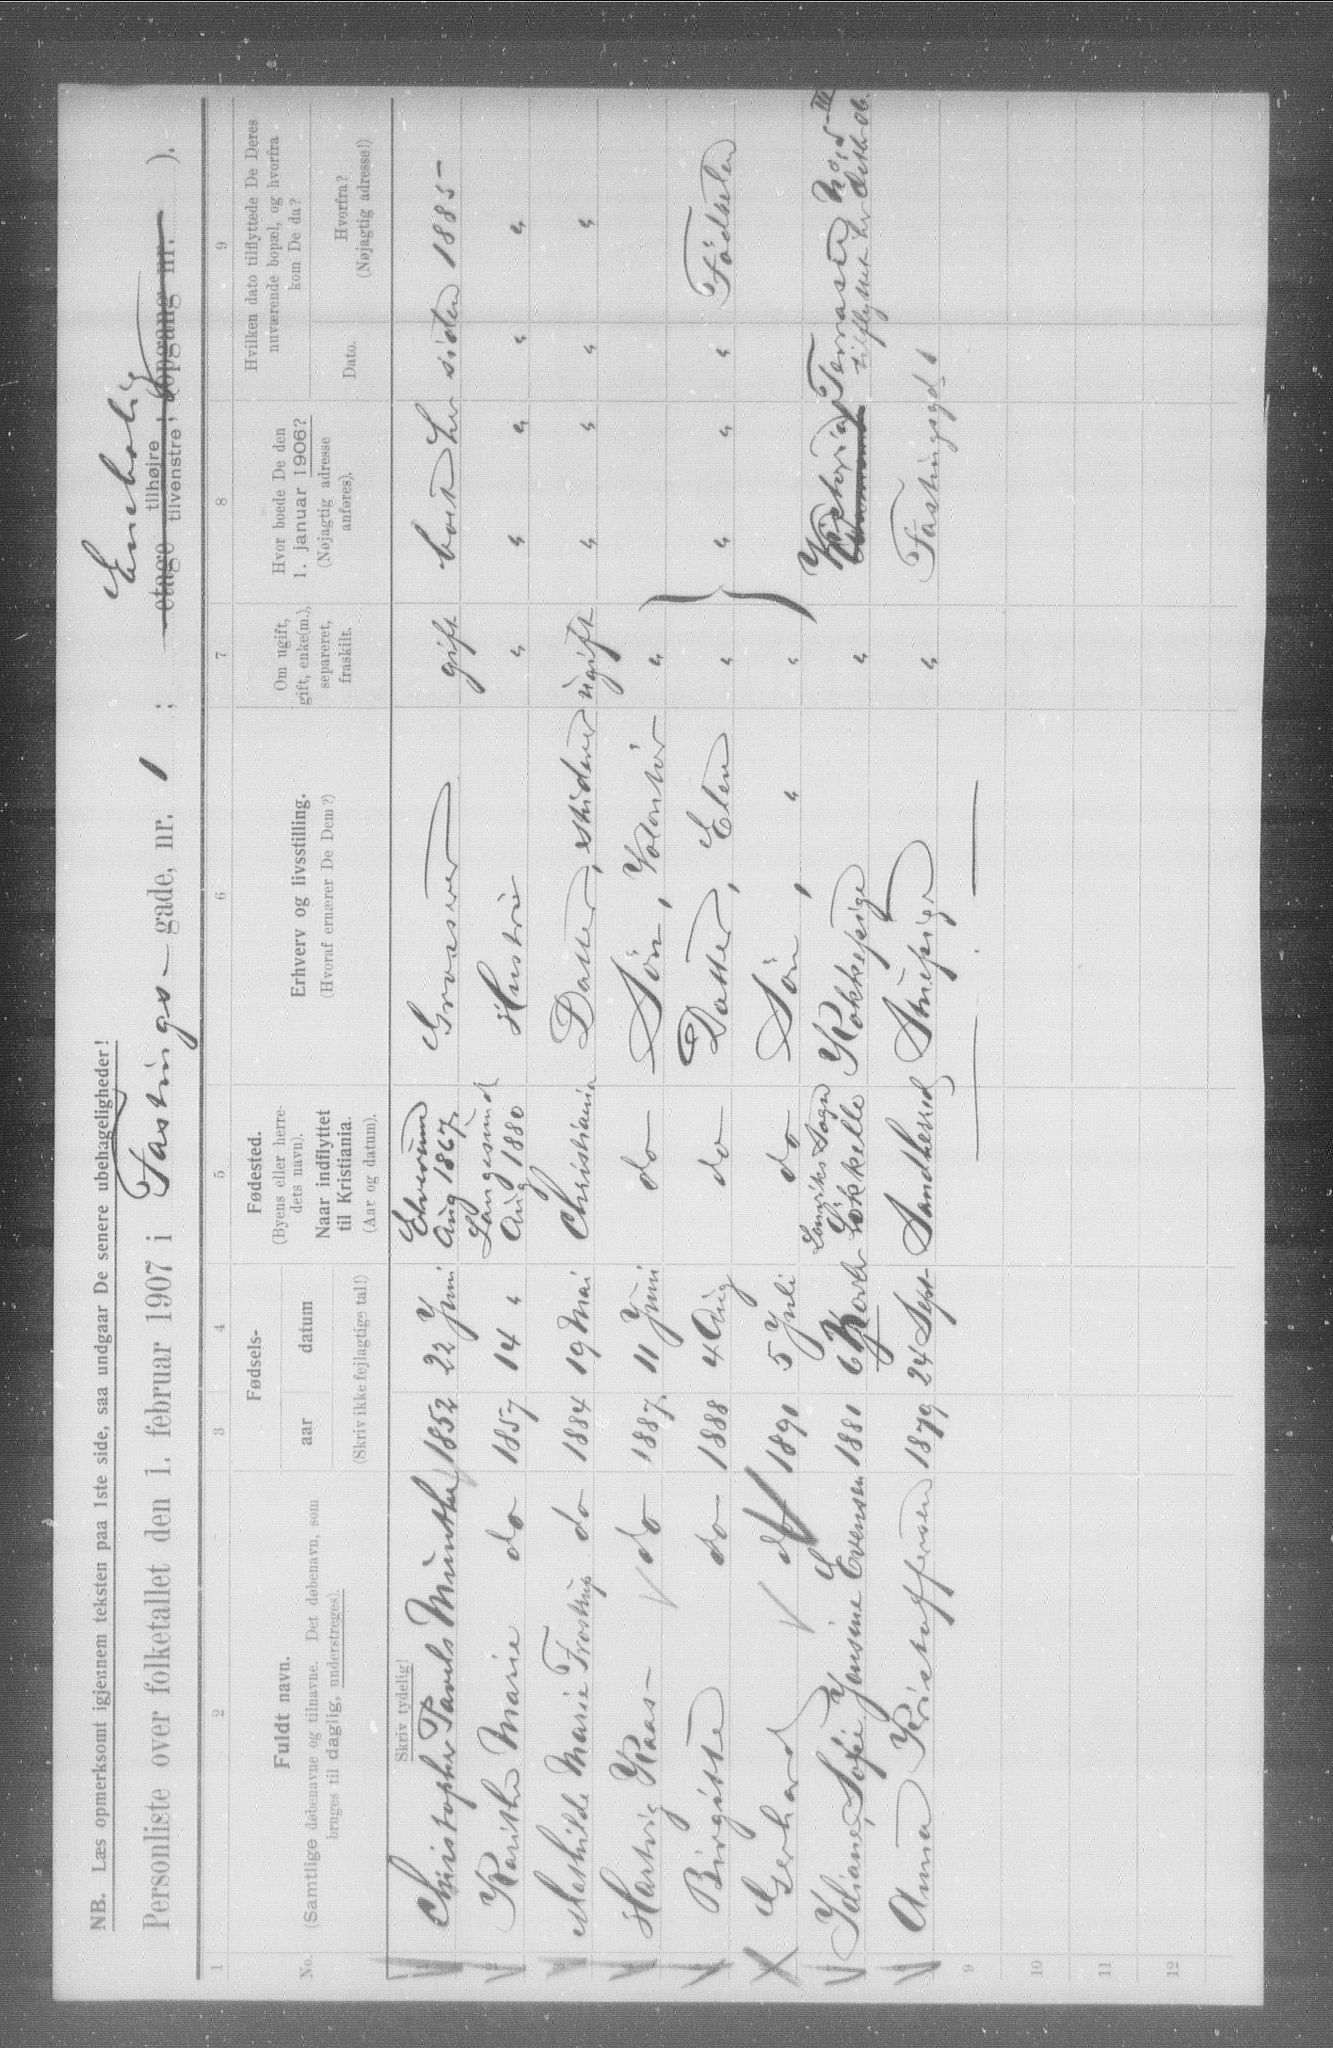 NB. Læs opmerksomt igjennem teksten paa 1ste side, saa undgaar De senere ubehageligheder!
Enebolig
Personliste over folketallet den 1. februar 1907 i Fastings- gade, nr. 1 ; etage tilhøjre tilvenstre; (opgang nr. ).
1 2 3 4 5 6 7 8 9
No.
Fuldt navn.
(Samtlige døbenavne og tilnavne. Det døbenavn, som
bruges til daglig, understreges).
Fødsels-
aar datum
(Skriv ikke fejlagtige tal!)
Fødested.
(Byens eller herre-
dets navn).
Naar indflyttet
til Kristiania.
(Aar og datum).
Erhverv og livsstilling.
(Hvoraf ernærer De Dem?)
Om ugift,
gift, enke(m.),
separeret,
fraskilt.
Hvor boede De den
1. januar 1906?
(Nøjagtig adresse
anføres).
Hvilken dato tilflyttede De Deres
nuværende bopæl, og hvorfra
kom De da?
Dato.
Hvorfra?
(Nøjagtig adresse!)
Skriv tydelig!
1 Christopher Pavels Munthe 1852 22 Juni Elverum Aug 1867 Grosserer gift boet her siden 1885-
2 Karithe Marie do 1857 14 " Langesund Aug 1880 Hustru " " " " "
3 Mathilde Marie Frostrup do 1884 19 Mai Christiania Datter, ugift " " " "
4 Hartvig Kaas- do 1887 11 Juni do Søn, Volontør "
5 Birgitte do 1888 4 Aug do Datter, Elev " " " " Fødselen
6 Gerhard do 1890 5 Juli do Søn, " "
7 Sofie Jensine Evensen 1880 6 Kokkepige " Victoria Terrasse
8 Anna Kristoffersen 1879 24 Sept- Sandherred Stuepige " Fastingsgd 1
9
10
11
12